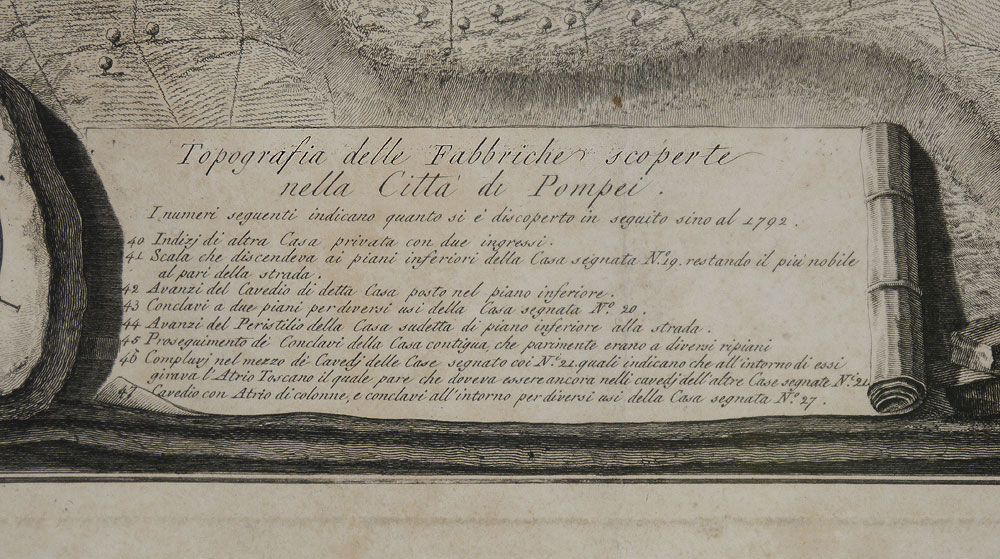 Topografia delle Fabbriche scoperte
nella Città di Pompei.
I numeri seguenti indicano quanto si è discoperto in seguito sino al 1792.
40 Indizj di altra Casa privata con due ingressi.
41 Scala che discendeva ai piani inferiori della Casa segnata N.º 19. restando il più nobile
al pari della strada.
42 Avanzi del Cavedio di detta Casa posto nel piano inferiore.
43 Conclavi a due piani per diversi usi della Casa segnata N.º 20.
44 Avanzi del Peristilio della Casa sudetta di piano inferiore alla strada.
45 Proseguimento de' Conclavi della Casa contigua, che parimente erano a diversi ripiani
46 Compluvj nel mezzo de' Cavedj delle Case segnato coi N.º 21. quali indicano che all'intorno di essi
girava l'Atrio Toscano il quale pare che doveva essere ancora nelli cavedj dell'altre Case segnate N.º 21.
47 Cavedio con Atrio di colonne, e conclavi all'intorno per diversi usi della Casa segnata N.º 27.